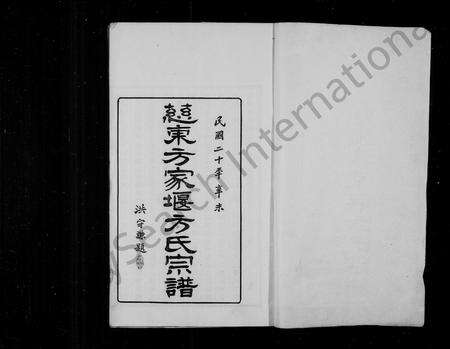 民國二十年辛未
慈東方家堰方氏宗譜
洪守□題
ySearch International